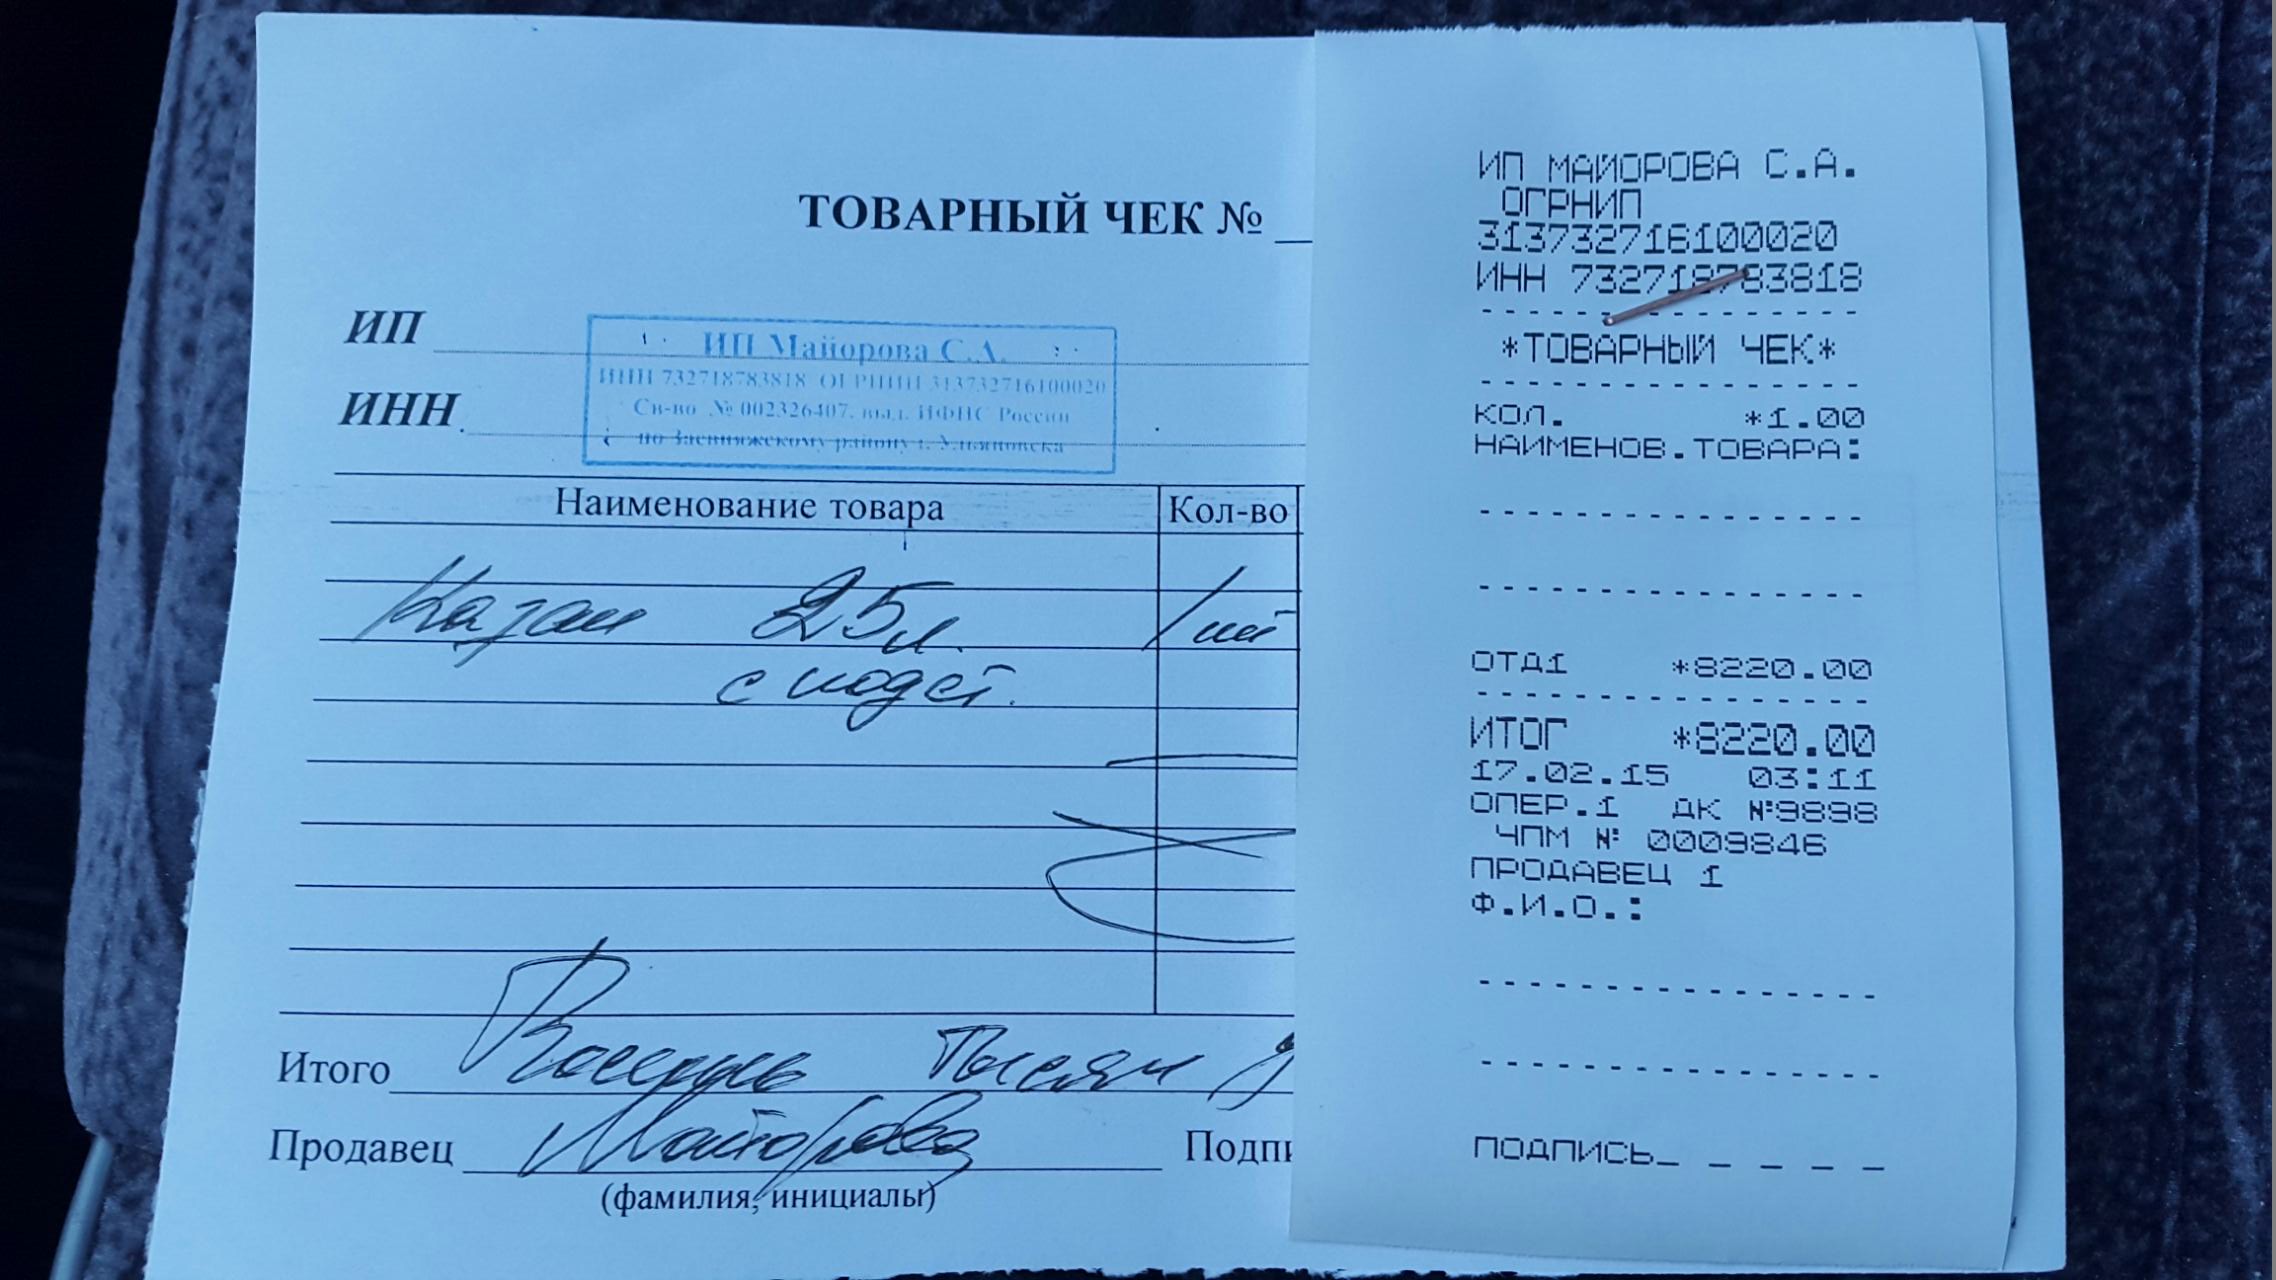 ТОВАРНЫЙ ЧЕК №
ИП
ИНН
ИП Майорова С.А.
ИНН 732718783818 ОГРНИП 313732716100020
Св-во № 002326407, выд. ИФНС России
по Засвияжскому району г. Ульяновска
Наименование товара Кол-во
Казан 25л. 1шт
с подст.
Итого Восемь тысяч
Продавец Майорова Подпи
(фамилия, инициалы)
ИП МАЙОРОВА С.А.
ОГРНИП
313732716100020
ИНН 732718783818
*ТОВАРНЫЙ ЧЕК*
КОЛ. *1.00
НАИМЕНОВ.ТОВАРА:
ОТД1 *8220.00
ИТОГ *8220.00
17.02.15 03:11
ОПЕР.1 ДК №9898
ЧПМ № 0009846
ПРОДАВЕЦ 1
Ф.И.О.:
ПОДПИСЬ_ _ _ _ _ _